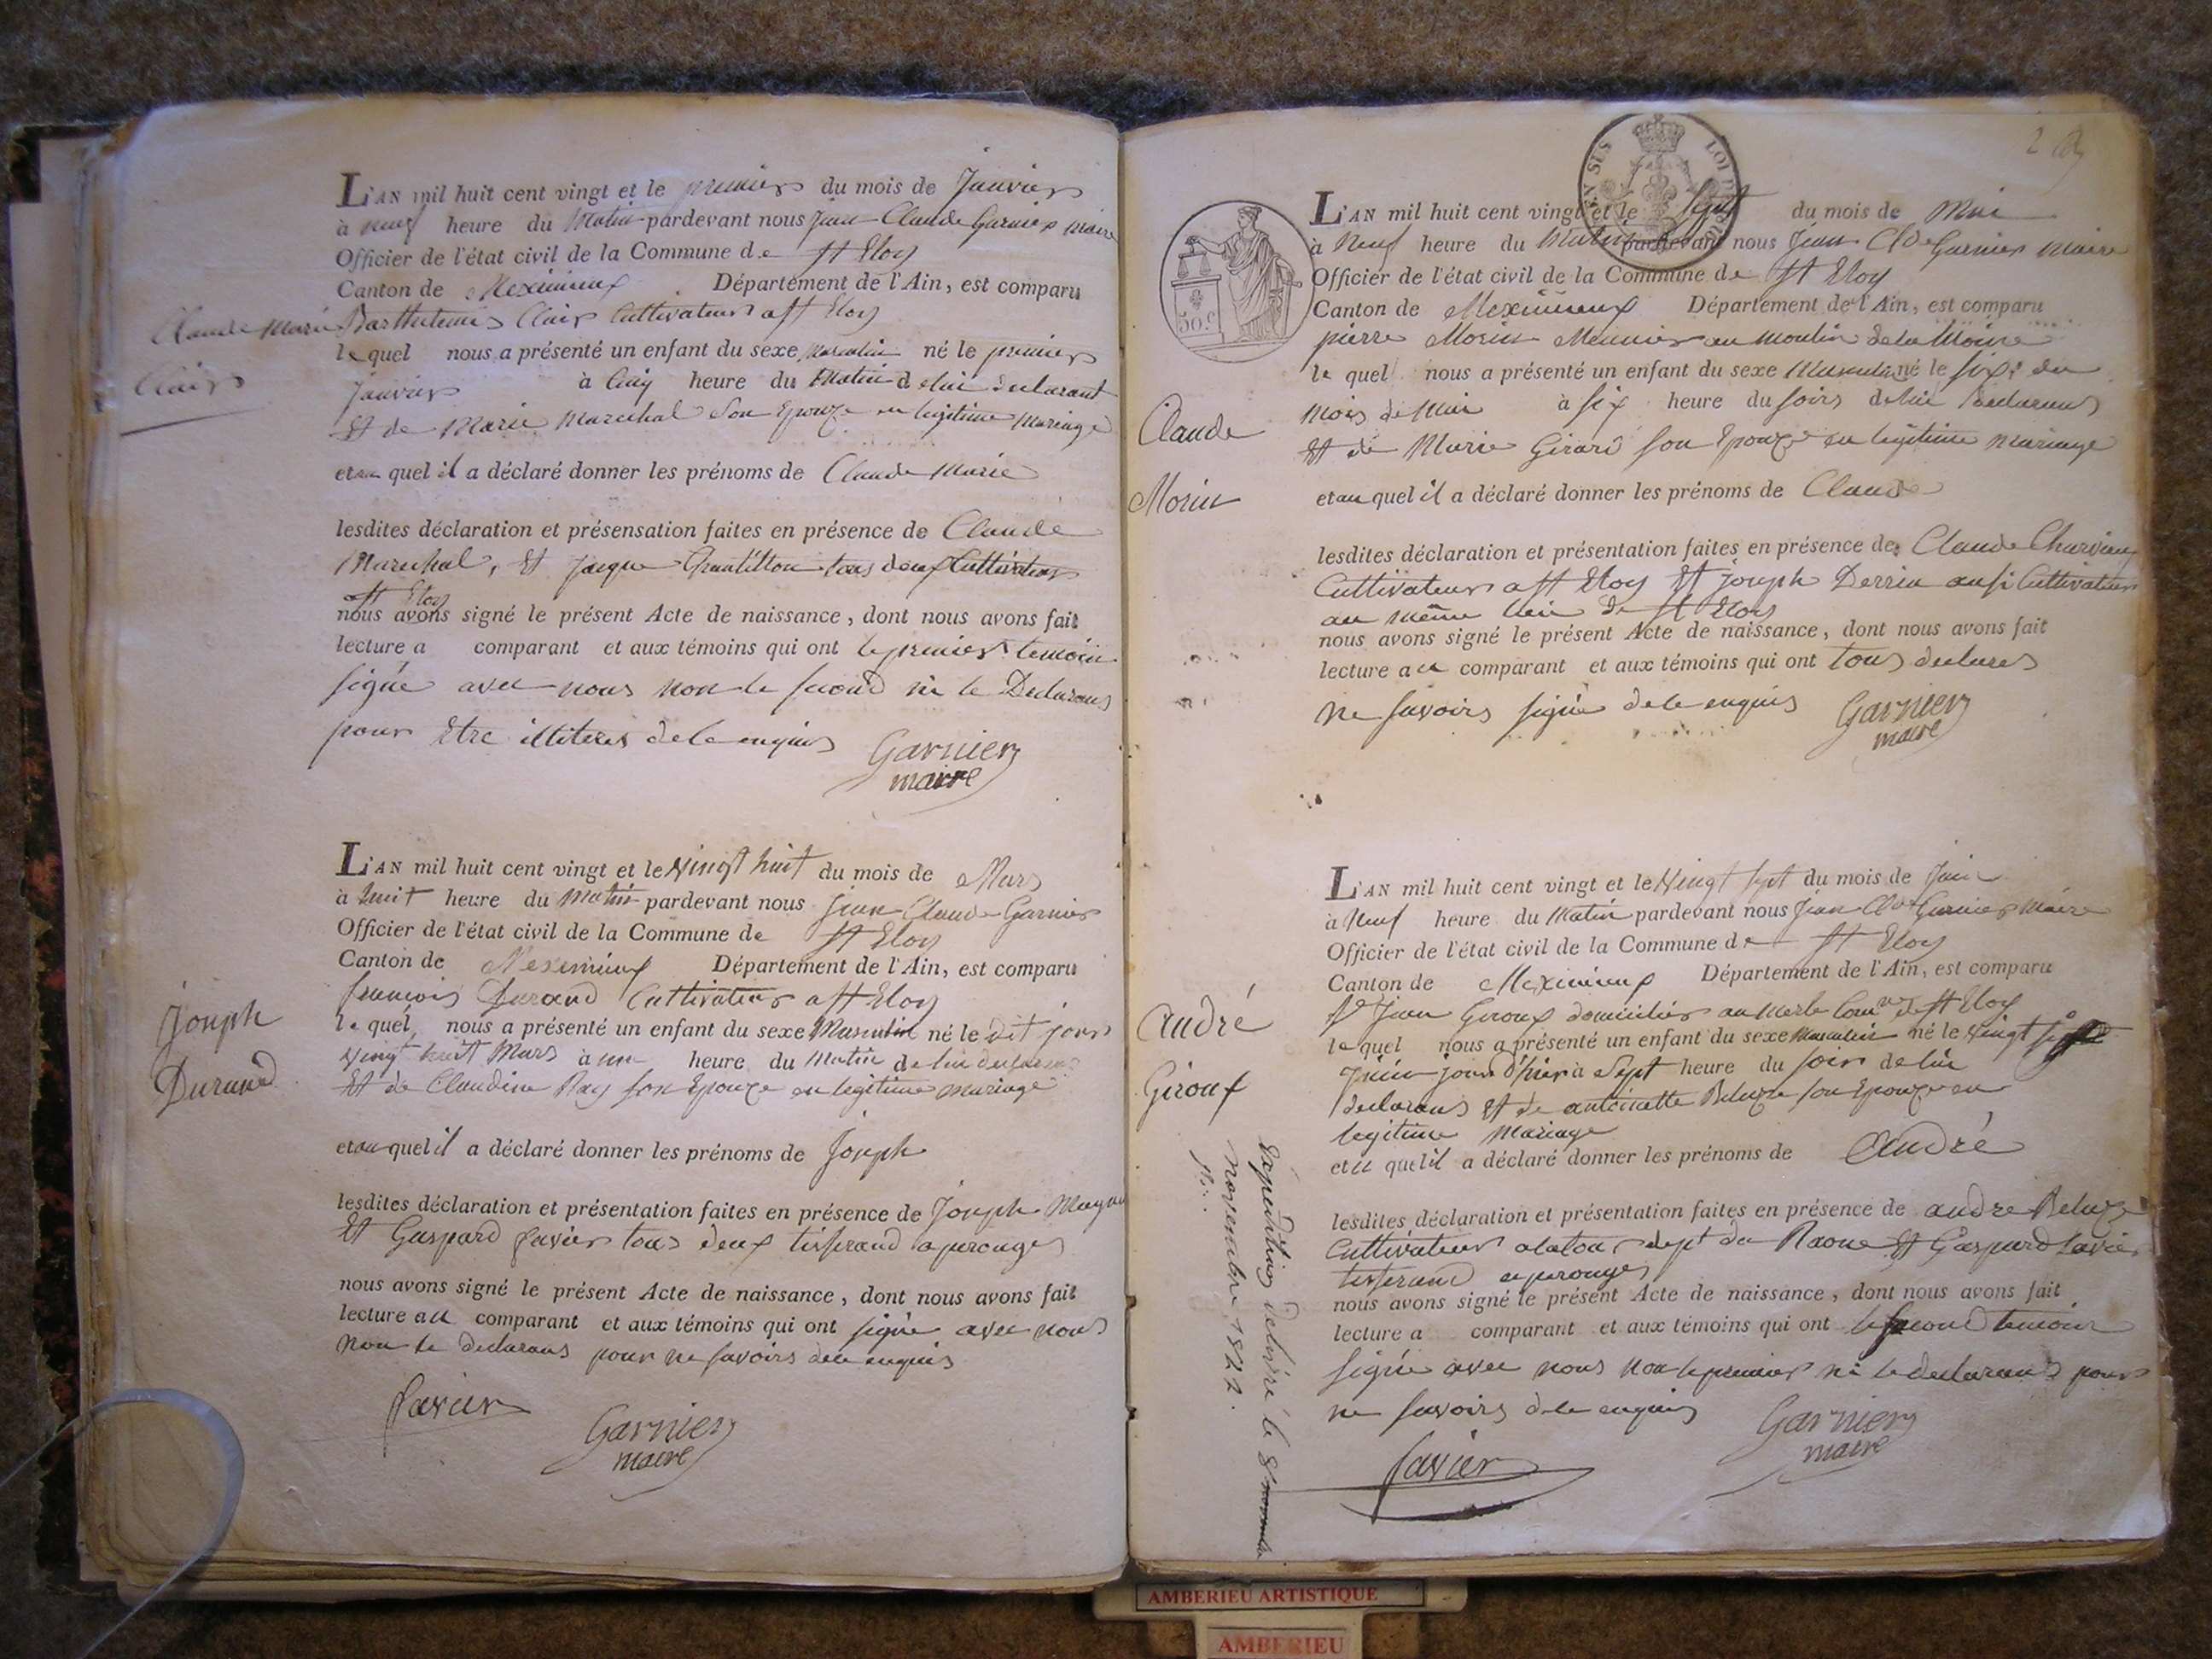 Claude Marie
Clair
L'AN mil huit cent vingt et le premier du mois de Janvier
à neuf heure du Matin pardevant nous Jean Claude Garnier maire
Officier de l'état civil de la Commune de St Eloy
Canton de Meximieux Département de l'Ain, est comparu
Barthelemis Clair Cultivateur a St Eloy
le quel nous a présenté un enfant du sexe Masculin né le premier
Janvier à Cinq heure du Matin de lui declarant
Et de Marie Marechal Son Epouze en legitime Mariage
et au quel il a déclaré donner les prénoms de Claude Marie
lesdites déclaration et présensation faites en présence de Claude
Marechal, Et Jaque tous deux Cultivateur
a St Eloy
nous avons signé le présent Acte de naissance, dont nous avons fait
lecture a comparant et aux témoins qui ont le premier temoin
signé avec nous non le second ni le Declarans
pour Etre illiteres de ce enquis
Garnier
maire
Joseph
Durand
L'AN mil huit cent vingt et le Vingt huit du mois de Mars
à huit heure du Matin pardevant nous Jean Claude Garnier
Officier de l'état civil de la Commune de St Eloy
Canton de Meximieux Département de l'Ain, est comparu
francois Durand Cultivateur a St Eloy
le quel nous a présenté un enfant du sexe Masculin né le dit jour
Vingt huit Mars à une heure du Matin de lui declarans
Et de Claudine Ray son Epouze en legitime mariage
et au quel il a déclaré donner les prénoms de Joseph
lesdites déclaration et présentation faites en présence de Joseph
Et Gaspard favier tous deux tisserand a perouges
nous avons signé le présent Acte de naissance, dont nous avons fait
lecture au comparant et aux témoins qui ont signé avec nous
Non le declarans pour ne savoirs de ce enquis
favier
Garnier
maire
2
EN SES LOI
50 c
Claude
Morin
L'AN mil huit cent vingt et le Sept du mois de Mai
à Neuf heure du Matin pardevant nous Jean Cl de Garnier Maire
Officier de l'état civil de la Commune de St Eloy
Canton de Meximieux Département de l'Ain, est comparu
pierre Morin Meunier au moulin de la
le quel nous a présenté un enfant du sexe Masculin né le six du
Mois de Mai à six heure du soirs de lui declarans
Et de Marie Girard son Epouze en legitime mariage
et au quel il a déclaré donner les prénoms de Claude
lesdites déclaration et présentation faites en présence de Claude
Cultivateur a St Eloy Et joseph Derrin ausi Cultivateur
au même lieu de St Eloy
nous avons signé le présent Acte de naissance, dont nous avons fait
lecture au comparant et aux témoins qui ont tous declares
ne savoirs signé de ce enquis
Garnier
maire
André
Giroux
Expedition delivré le 8 novembre
novembre 1822.
L'AN mil huit cent vingt et le Vingt sept du mois de Juin
à Neuf heure du Matin pardevant nous Jean Cl de Garnier Maire
Officier de l'état civil de la Commune de St Eloy
Canton de Meximieux Département de l'Ain, est comparu
Jean Giroux domicilier au Merle Comne de St Eloy
le quel nous a présenté un enfant du sexe Masculin né le Vingt
juin jour d'hier à Sept heure du soir de lui
declarans Et de antoinette Beluze son Epouze en
legitime Mariage
et u quel il a déclaré donner les prénoms de André
lesdites déclaration et présentation faites en présence de andre Beluze
Cultivateur a la tour dept du Raone Et Gaspard favier
tisserand a perouges
nous avons signé le présent Acte de naissance, dont nous avons fait
lecture a comparant et aux témoins qui ont le second temoin
signé avec nous non le premier ni le declarans pour
ne savoirs de ce enquis
Garnier
maire
favier
AMBERIEU ARTISTIQUE
AMBERIEU